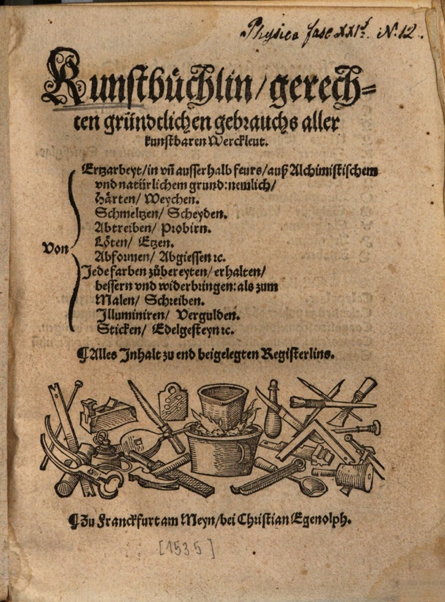 Physica fasc XXI. N. 12.
Kunstbüchlin/ gerech-
ten gründtlichen gebrauchs aller
kunstbaren Werckleut.
Ertzarbeyt/ in vñ ausserhalb feurs/ auß Alchimistischem
vnd natürlichem grund: nemlich/
Härten/ Weychen.
Schmeltzen/ Scheyden.
Abtreiben/ Probirn.
Von
Löten/ Etzen.
Abformen/ Abgiessen ꝛc.
Jede farben zůbereyten/ erhalten/
bessern vnd widerbringen: als zum
Malen/ Schreiben.
Illuminiren/ Vergulden.
Sticken/ Edelgesteyn ꝛc.
¶Alles Inhalt zu end beigelegten Registerlins.
¶Zu Franckfurt am Meyn/ bei Christian Egenolph.
[1535]